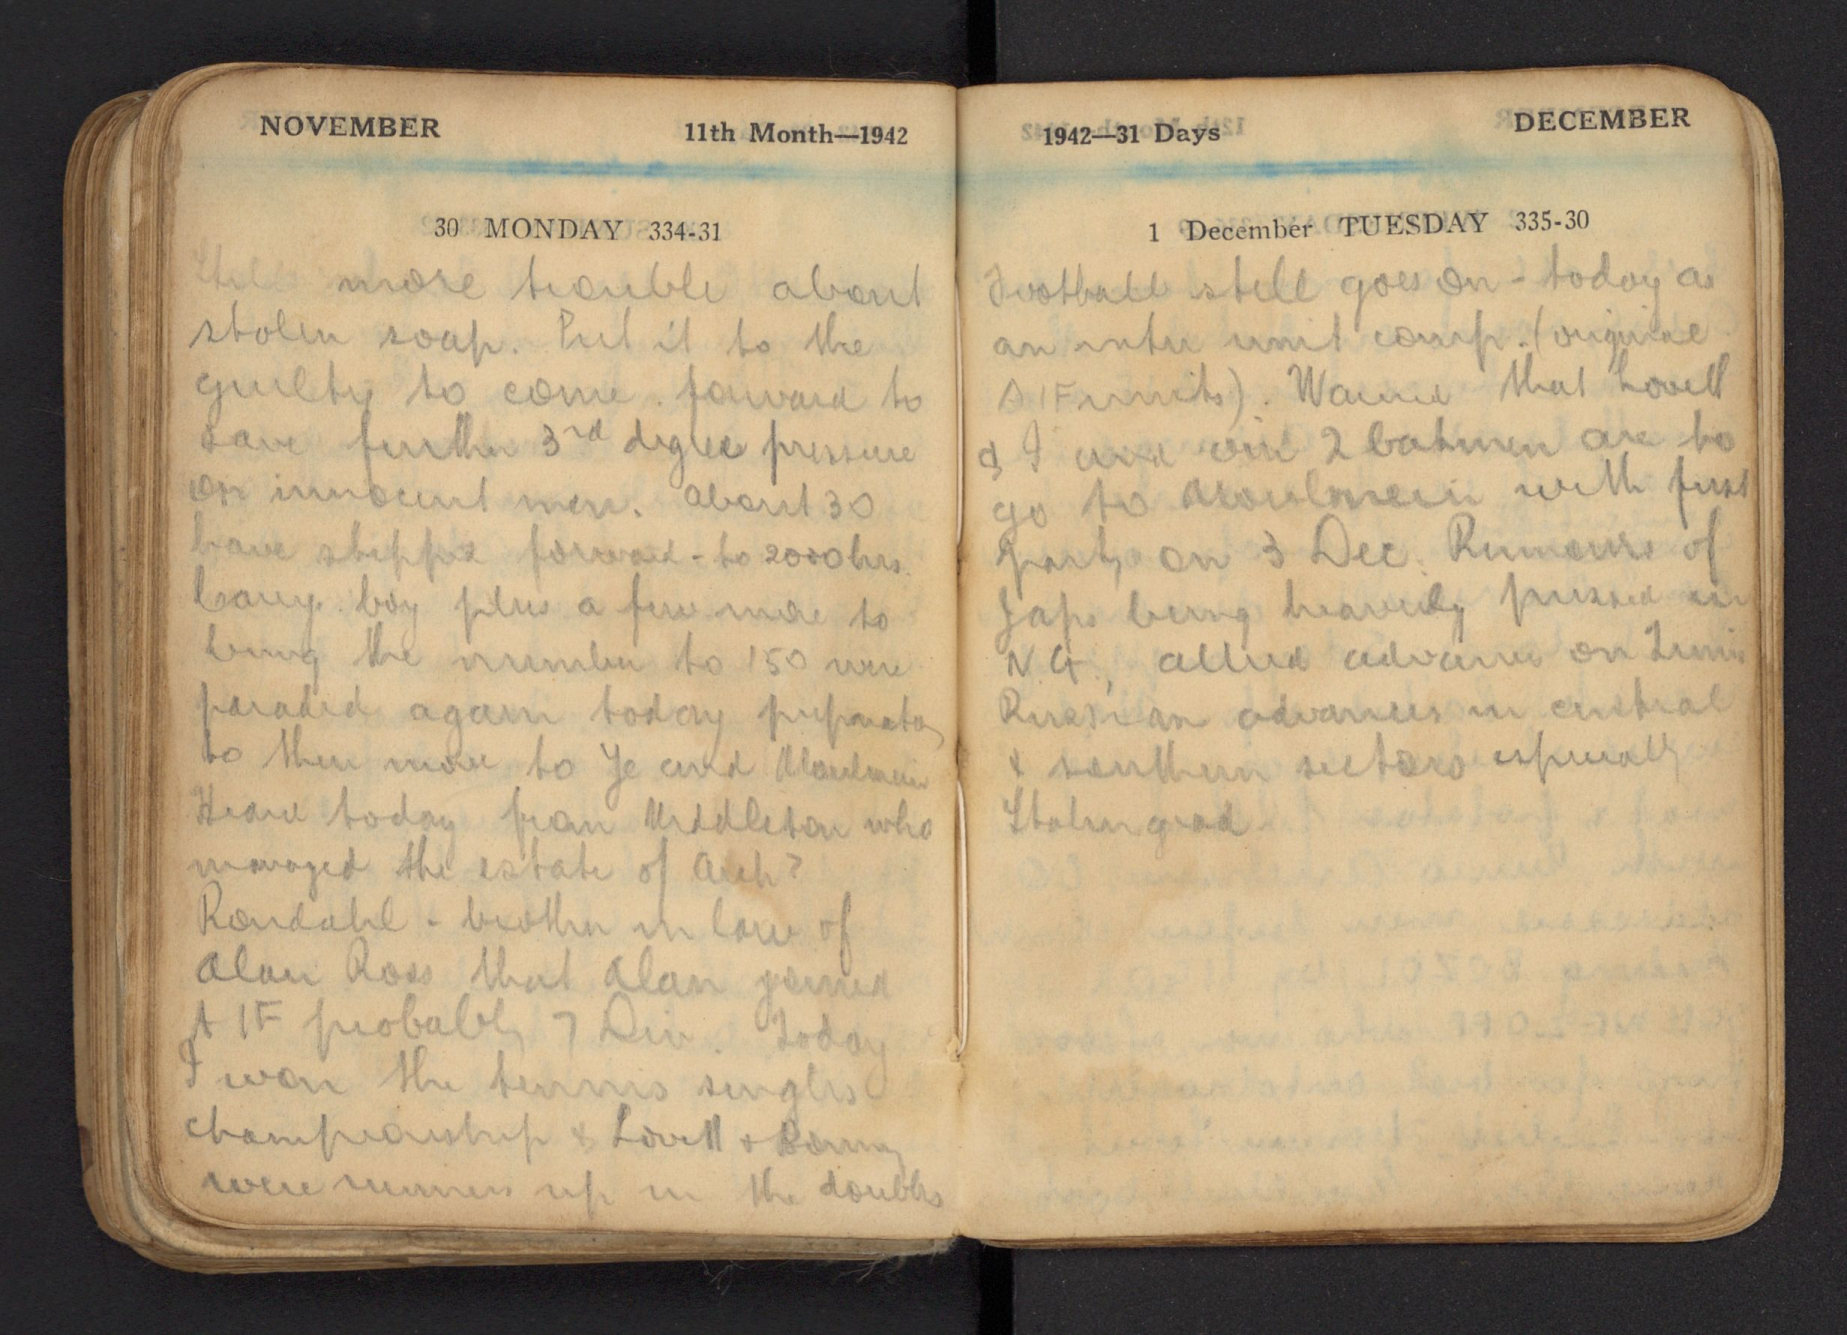 NOVEMBER 11th Month—1942
30 MONDAY 334-31
Still more trouble about
stolen soap. Put it to the
guilty to come forward to
save further 3rd degree pressure
on innocent men. About 30
have stepped forward - to 2000 hrs.
boy plus a few more to
bring the number to 150 were
paraded again today preparatory
to their move to Ye and Moulmein
Heard today from Middleton who
managed the estate of Arch?
Rondahl - brother in law of
Alan Ross that Alan joined
AIF probably 7 Div. Today
I won the tennis singles
championship & Lovett &
were runners up in the doubles
1942—31 Days DECEMBER
1 December TUESDAY 335-30
Football still goes on - today as
an inter unit comp. (original
AIF units). Warned that Lovett
& I and our 2 batmen are to
go to Moulmein with first
party on 3 Dec. Rumours of
Japs being heavily pressed in
N.G., allied advance on Tunis
Russian advances in central
& southern sectors especially
Stalingrad